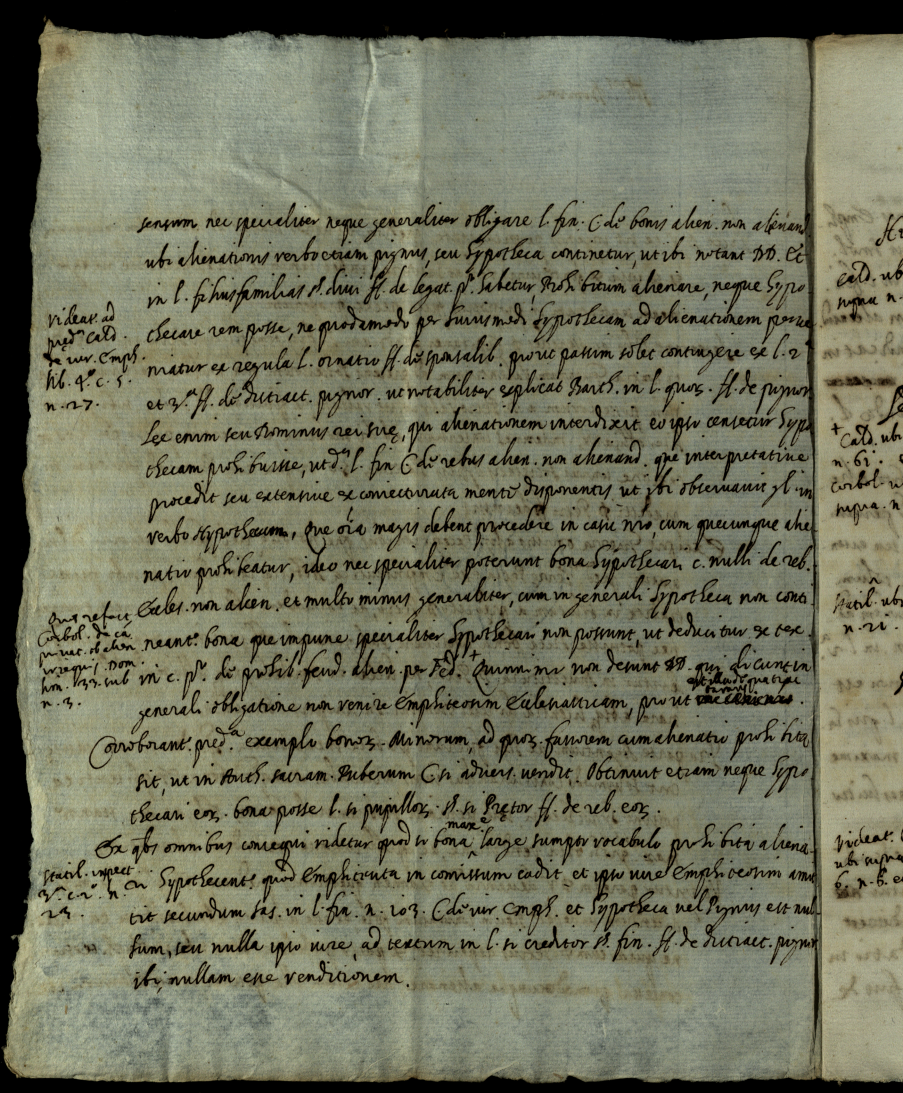 sensum nec specialiter neque generaliter obligare l. fin. C de bonis alien. non alienand
ubi alienationis verbo etiam pignus, seu hypotheca continetur, ut ibi notant DD. Et
in l. filiusfamilias §. divi ff. de legat. p.º habetur, prohibitum alienare, neque hypo
thecare rem posse, ne quodamodo per huiusmodi hypothecam ad alienationem perve
niatur ex regula l. oratio ff. de sponsalib. prout passim solet contingere ex l. 2ª
et 3ª ff. de distract. pignor. ut notabiliter explicat Barth. in l. ff. de pignor
Lex enim seu Dominus rei suę, qui alienationem interdixit eo ipso censetur hypo
thecam prohibuisse, ut d.ª l. fin C de rebus alien. non alienand. que interpretative
procedit seu extensive ex coniecturata mente disponentis ut ibi observavit gl. in
verbo Hypothecam, Que oīa magis debent procedere in casu nrō, cum quecunque alie
natio prohibeatur, ideo nec specialiter poterunt bona hypothecari c. nulli de reb.
Eccles. non alien. et multo minus generaliter, cum in generali hypotheca non conti
neant.r bona que impune specialiter hypothecari non possunt, ut deducitur ex tex.
in c. p.º de prohib. feud. alien. per Fed. + Quinimo non desunt DD. qui dicunt in
generali obligatione non venire Emphiteosim Ecclesiasticam, prout
Corroborant.r pred.ª exemplo bonor. Minorum, ad quor. favorem cum alienatio prohibita
sit, ut in Auth. sacram. Puberum C si advers. vendit. Obtinuit etiam neque hypo
thecari eor. bona posse l. si pupillor. §. si Prętor ff. de reb. eor.
Ex qbs omnibus consequi videtur quod si bona maxe large sumpto vocabulo prohibita aliena
ri hypothecent.r quod Emphiteuta in comissum cadit, et ipso iure Emphiteosim amit
tit secundum Ias. in l. fin. n. 203. C de iur. Emph. et hypotheca vel Pignus est nul
lum, seu nulla ipso iure, ad textum in l. si creditor §. fin. ff. de distract. pignor
ibi, nullam esse venditionem.
videat. ad
pred.ª Cald
de iur. Emph.
lib. 4.º c. 5.
n. 27.
Corbol. de ca
privat. ob alien
n. 3.
Statil. inspect
3ª c. 2.º n.
23.
Cald. ubi
supra n.
+ Cald. ubi
n. 61.
Corbol. u
supra. n
Statil. ubi
n. 21.
videat.
ubi supra
6. n. 6. e